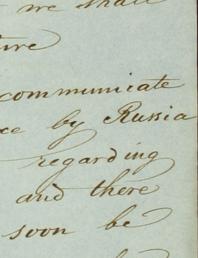 we shall
communicate
by Russia
regarding
and there
soon be